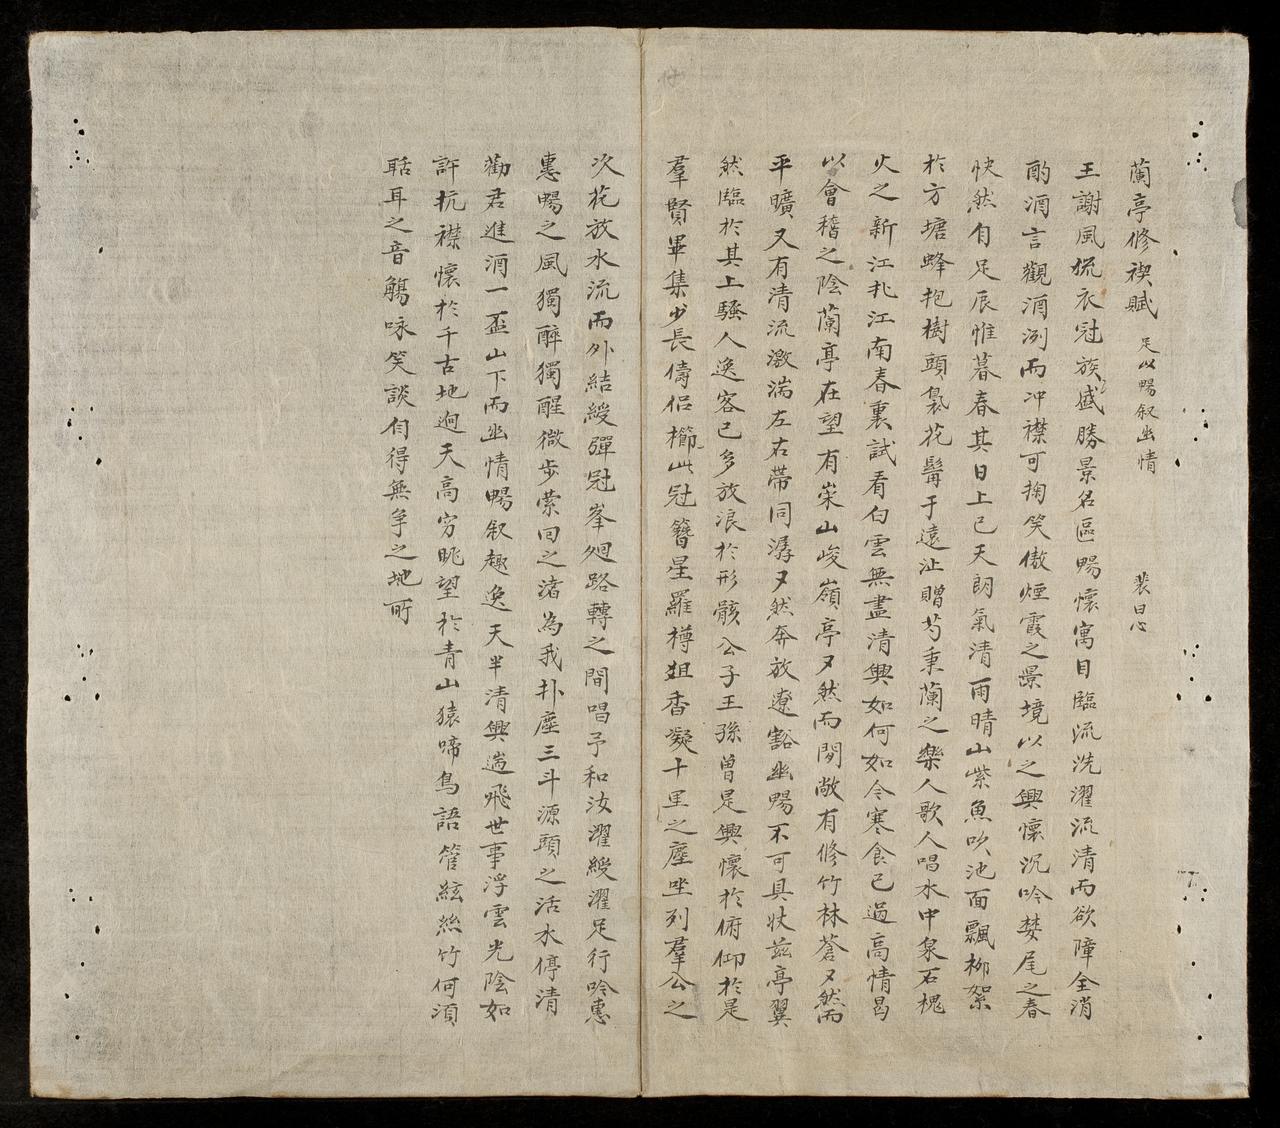 蘭亭修禊賦 足以暢叙幽情 裴日心
王謝風流衣冠族盛勝景名區暢懷寓目臨流洗濯流清而欲障全消
酌酒言觀酒洌而冲襟可掬笑傲煙霞之景境以之興懷沉吟婪尾之春
快然自足辰惟暮春其日上巳天朗氣清雨晴山紫魚吹池面飄柳絮
於方塘蜂抱樹頭裊花鬚于遠沚贈芍秉蘭之樂人歌人唱水中泉石槐
火之新江北江南春裏試看白雲無盡清興如何如令寒食已過高情曷
以會稽之陰蘭亭在望有崇山峻嶺亭又然而閒敞有修竹林蒼又然而
平曠又有清流激湍左右帶同潺又然奔放遼豁幽暢不可具狀茲亭翼
然臨於其上騷人逸客已多放浪於形骸公子王孫曾是興懷於俯仰於是
羣賢畢集少長儔侶櫛比冠簪星羅樽俎香凝十里之塵坐列羣公之
次花放水流而外結綬彈冠峯廻路轉之間唱予和汝濯綬濯足行吟惠
惠暢之風獨醉獨醒微步縈回之渚為我扑塵三斗源頭之活水停清
勸君進酒一盃山下而幽情暢叙趣逸天半清興遄飛世事浮雲光陰如
許抗襟懷於千古地迥天高穷眺望於青山猿啼鳥語管絃絲竹何須
聒耳之音觴咏笑談自得無争之地所